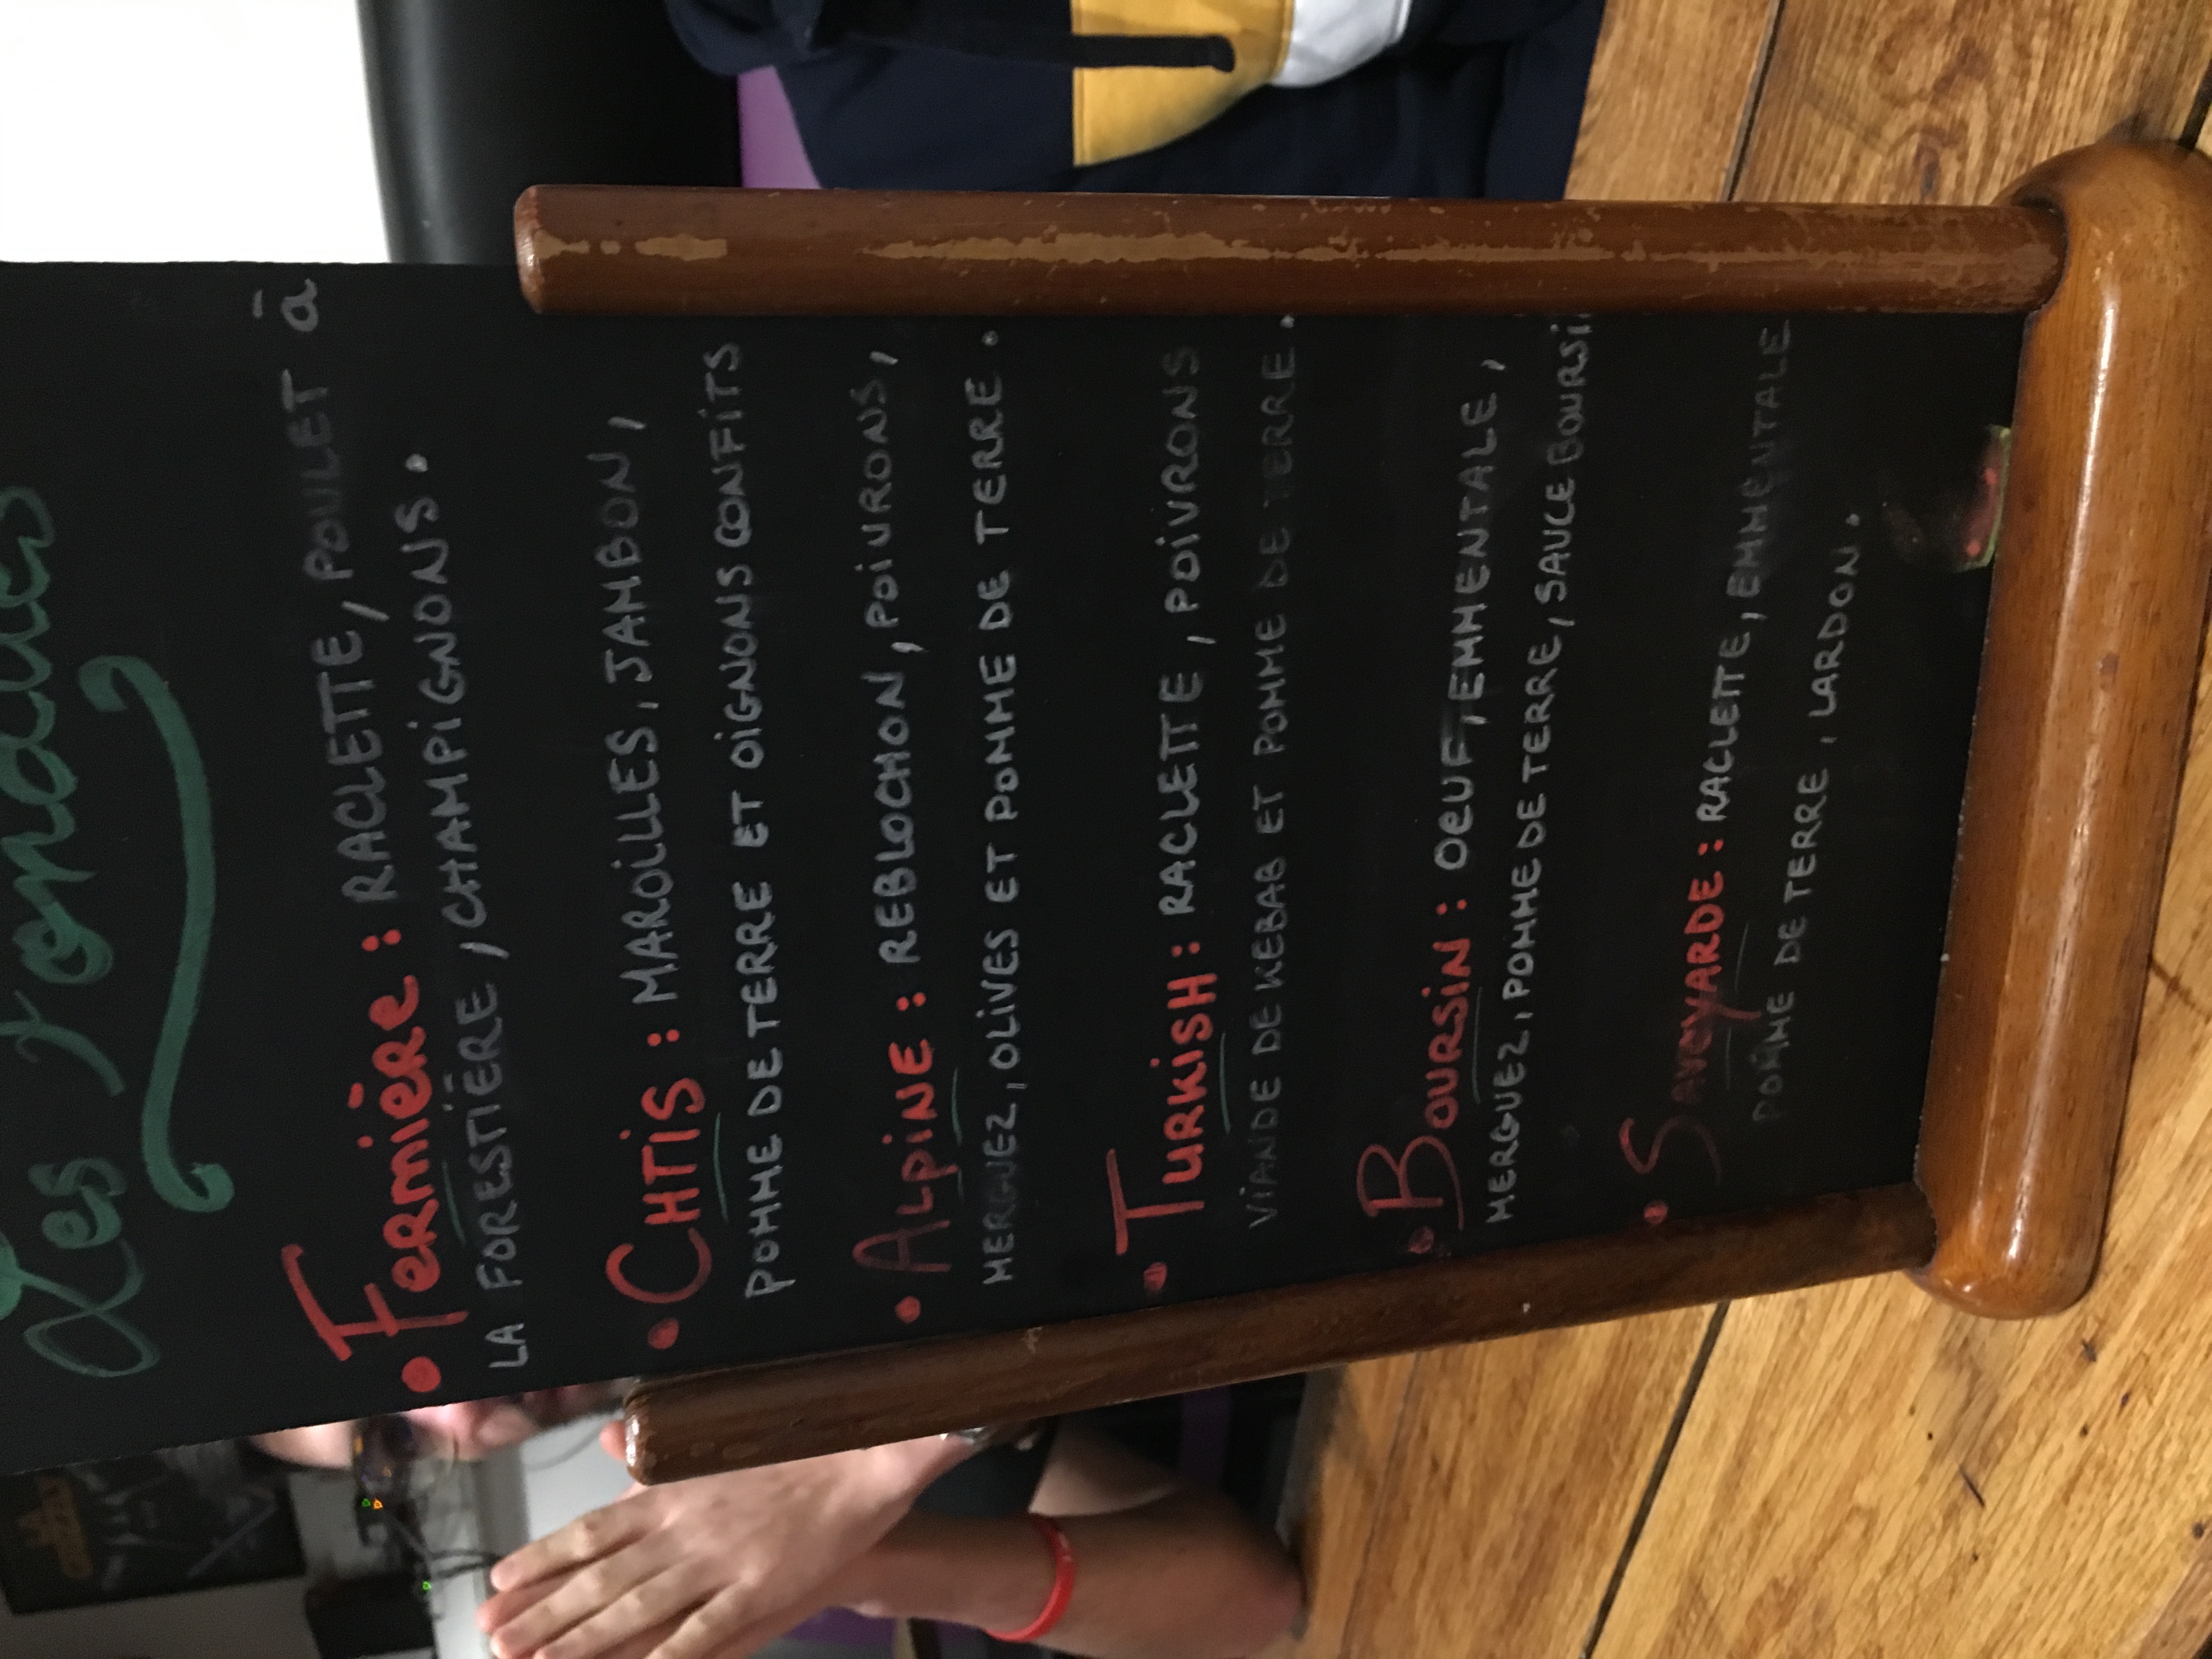 Les Fondues
• Fermière : RACLETTE, POULET à
LA FORESTIÈRE, CHAMPIGNONS.
• CHTIS : MAROILLES, JAMBON,
POMME DE TERRE ET OIGNONS CONFITS
• ALPINE : REBLOCHON, POIVRONS,
MERGUEZ, OLIVES ET POMME DE TERRE.
• TURKISH : RACLETTE, POIVRONS
VIANDE DE KEBAB ET POMME DE TERRE.
• BOURSIN : OEUF, EMMENTALE,
MERGUEZ, POMME DE TERRE, SAUCE BOURSI
• SAVOYARDE : RACLETTE, EMMENTALE
POMME DE TERRE, LARDON.